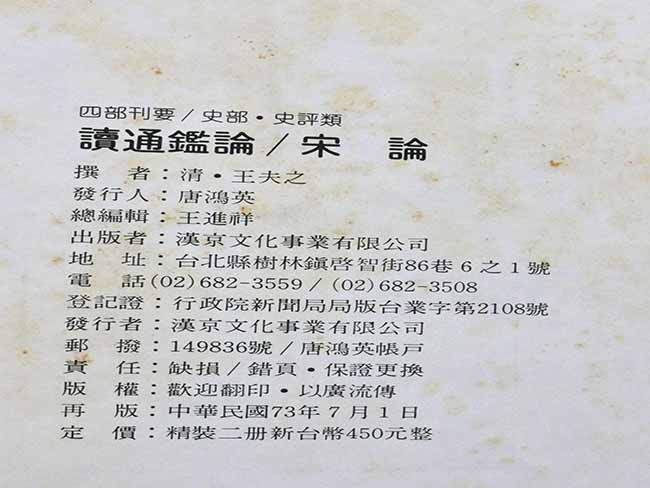 四部刊要/史部·史評類
讀通鑑論/宋 論
撰 者：清·王夫之
發行人：唐鴻英
總編輯：王進祥
出版者：漢京文化事業有限公司
地 址：台北縣樹林鎮啓智街86巷6之1號
電 話(02)682-3559/(02)682-3508
登記證：行政院新聞局局版台業字第2108號
發行者：漢京文化事業有限公司
郵 撥：149836號/唐鴻英帳戶
責 任：缺損/錯頁·保證更換
版 權：歡迎翻印·以廣流傳
再 版：中華民國73年7月1日
定 價：精裝二册新台幣450元整